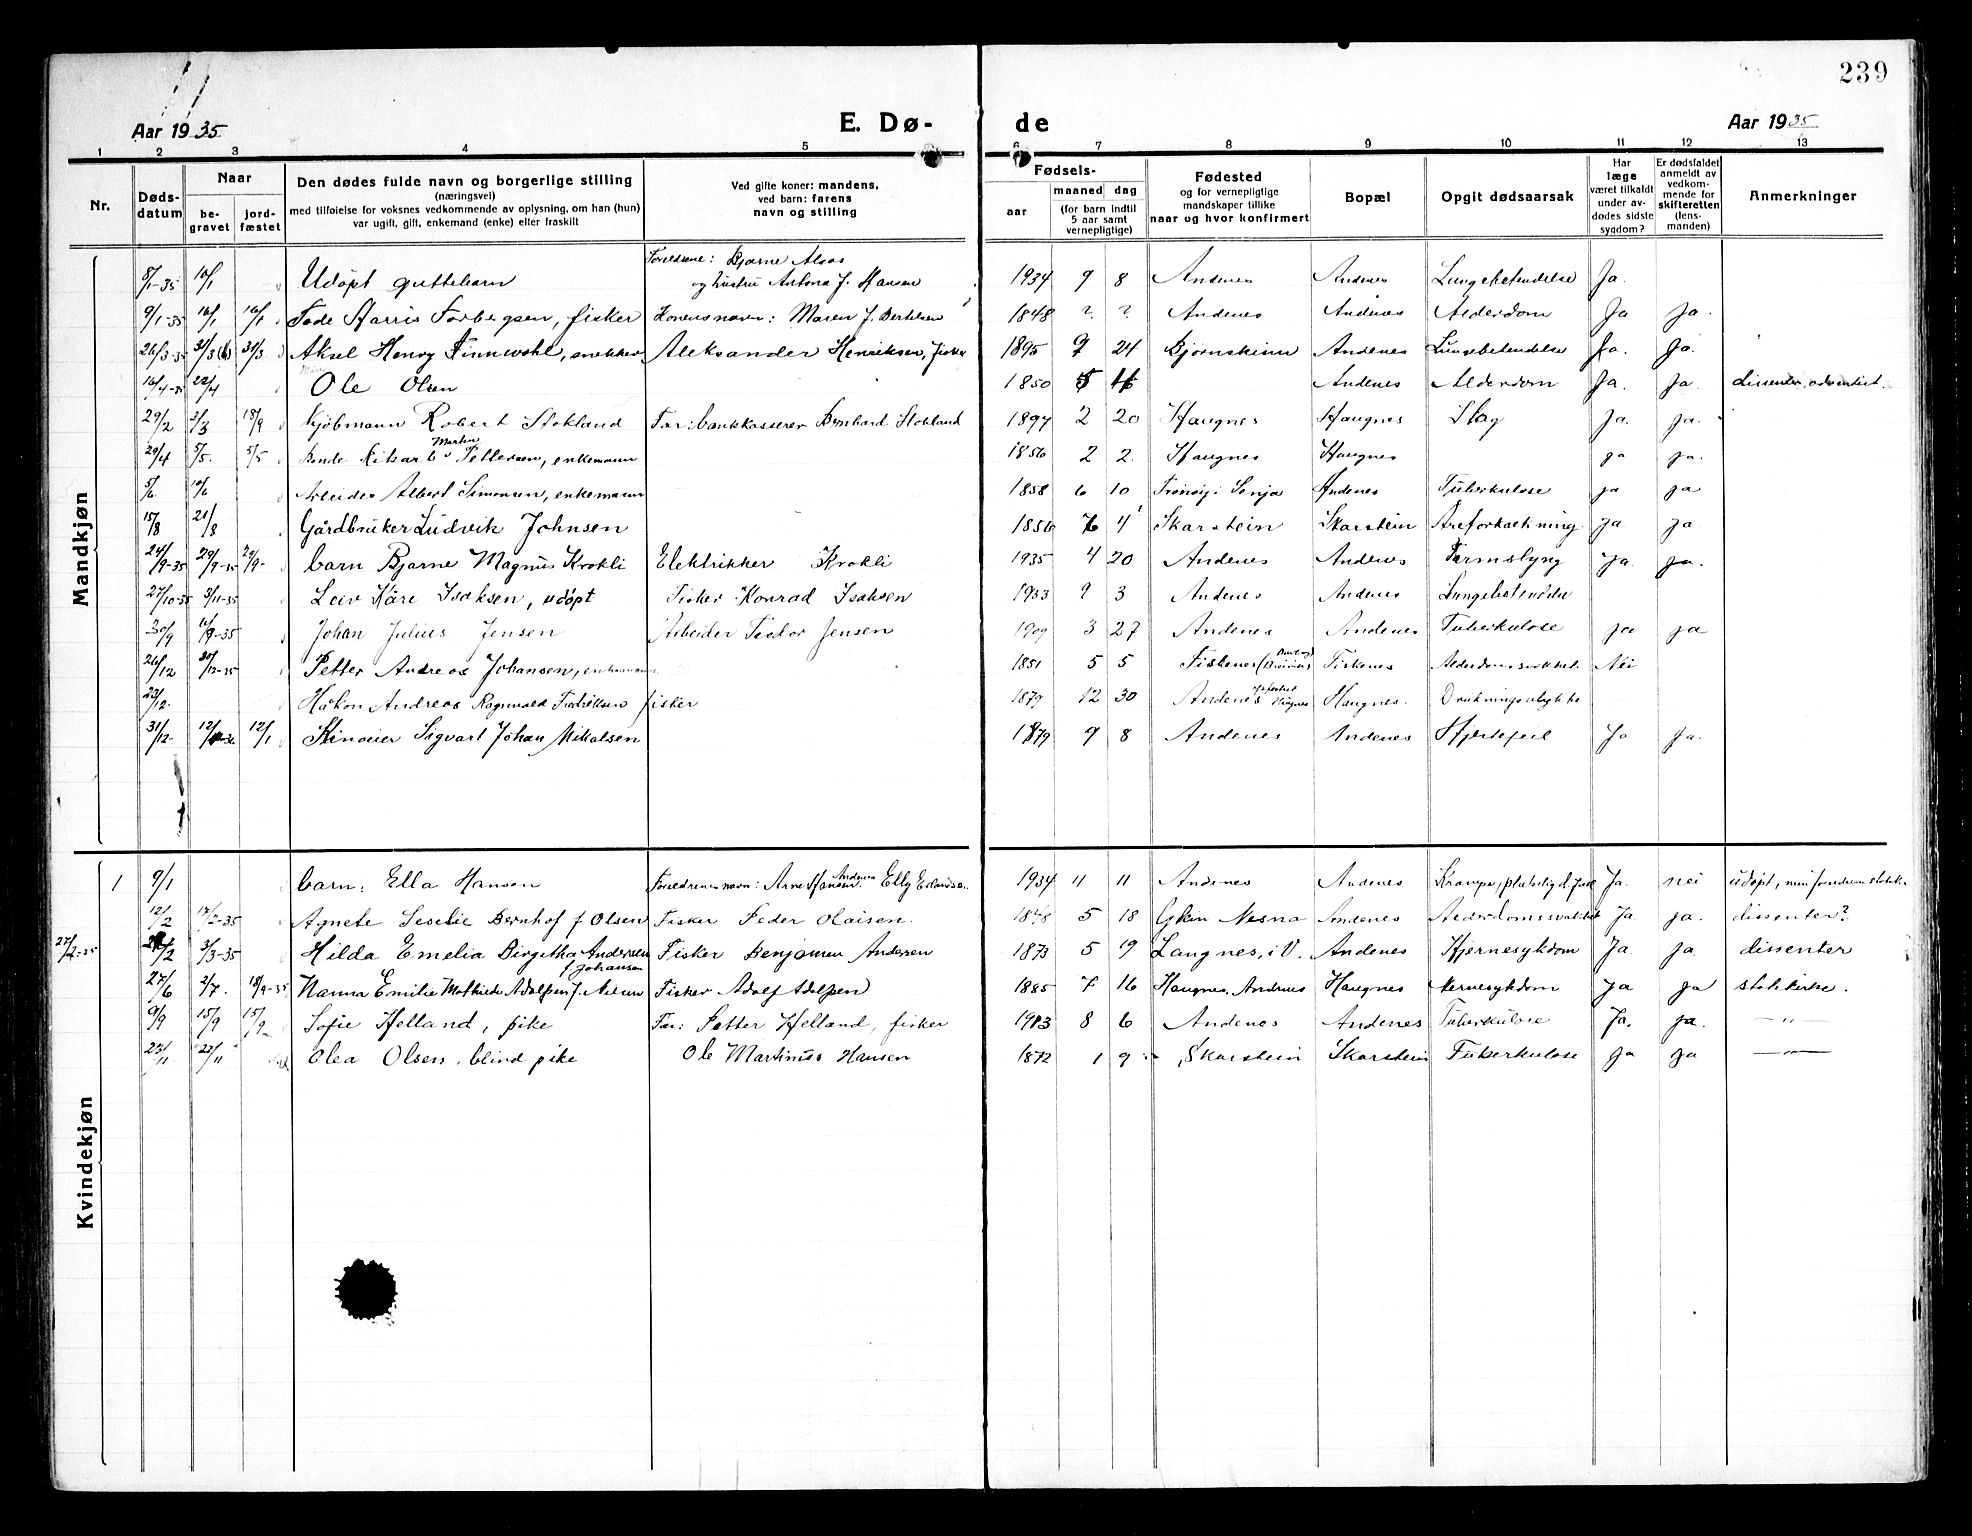 239
Aar 1935
E. Dø-
de
Aar 1935
1 2 3 4 5 6 7 8 9 10 11 12 13
Nr.
Døds-
datum
Naar
be-
gravet
jord-
fæstet
Den dødes fulde navn og borgerlige stilling
(næringsvei)
med tilføielse for voksnes vedkommende av oplysning, om han (hun)
var ugift, gift, enkemand (enke) eller fraskilt
Ved gifte koner: mandens,
ved barn: farens
navn og stilling
Fødsels-
aar
maaned
dag
(for barn indtil
5 aar samt
vernepligtige)
Fødested
og for vernepligtige
mandskaper tillike
naar og hvor konfirmert
Bopæl
Opgit dødsaarsak
Har
læge
været tilkaldt
under av-
dødes sidste
sygdom?
Er dødsfaldet
anmeldt av
vedkom-
mende for
skifteretten
(lens-
manden)
Anmerkninger
Mandkjøn
8/1-35 10/1 Udøpt guttebarn Foreldrene: Bjarne Alsos
og hustru Antona J. Hansen 1934 9 8 Andenes Andenes Lungebetendelse Ja.
9/1-35 16/1 16/1 Tode Harris Torbergsen, fisker Konens navn: Maren J. Bertelsen 1848 ? ? Andenes Andenes Alderdom Ja Ja.
26/3-35 31/3 31/3 Aksel Henry Finnvohl, snekker Aleksander Henriksen, fisker 1895 9 24 Bjørnskinn Andenes Lungebetendelse Ja. Ja.
16/4-35 22/4 Ole Olsen 1850 5 16 Andenes Alderdom Ja. Ja. dissenter, adventist.
29/2 3/3 18/9 Kjøbmann Robert Stokland Far: bankkasserer Bernhard Stokland 1897 2 20 Haugnes Haugnes Slag Ja. Ja.
29/4 5/5. 5/5 Bonde Rikard Martin Pettersen, enkemann 1856 2 2. Haugnes Haugnes ja ja.
5/6. 10/6 Arbeider Albert Simonsen, enkemann 1858 6 10 Tronøy i Senja Andenes Tuberkulose ja ja
15/8 21/8 Gårdbruker Ludvik Johnsen 1856 7 4 Skarstein Skarstein Åreforkalkning Ja Ja.
24/9-35 29/9-35 29/9- barn Bjarne Magnus Krokli Elektrikker Krokli 1935 4 20 Andenes Andenes Tarmslyng Ja. Ja.
27/10-35 3/11-35 Leiv Kåre Isaksen, udøpt Fisker Konrad Isaksen 1933 9 3 Andenes Andenes Lungebetendelse
30/9 Johan Julius Jensen Arbeider Teodor Jensen 1909 3 27 Andenes Andenes Tuberkulose ja ja
26/12 Petter Andreas Johansen, enkemann 1851 5 5 Fiskenes Fiskenes Alderdomssvakhet. Nei
23/12. Håkon Andreas Ragnvald Fredriksen fisker 1879 12 30 Andenes Haugnes. Drukningsulykke
31/12- 12/1-36 12/1 Kinoeier Sigvart Johan Mikalsen 1879 9 8 Andenes Andenes Hjertefeil Ja Ja.
Kvindekjøn
1 9/1 barn: Ella Hansen Foreldrenes navn: Arne Hansen Andenes Elly 1934 11 11 Andenes Andenes Krampe, Ja. nei udøpt,
12/2 17/2-35 Agnete Seselie Bernhof f. Olsen Fisker Peder Olaisen. 1848 5 18 Nesna Andenes Alderdomssvakhet Ja. ja. dissenter?
27/2-35 3/3-35 Hilda Emelia Birgitha Andersen
f. Johansen Fisker Benjamin Andersen 1873 5 19 Langnes, i V. Andenes Hjernesykdom Ja ja. dissenter
27/6 2/7. 18/9-35 Nanna Emilie Mathilde Adolfsen f. Nilsen Fisker Adolf Adolfsen 1885 7 16 Haugnes, Andenes Haugnes Nervesykdom ja ja statskirke.
9/9 15/9 15/9- Sofie Helland, pike Far: Petter Helland, fisker 1913 8 6 Andenes Andenes Tuberkulose Ja. ja. —"—
23/11 27/11 Olea Olsen, blind pike Ole Martinus Hansen 1872 1 9 Skarstein Skarstein Tuberkulose ja ja —"—